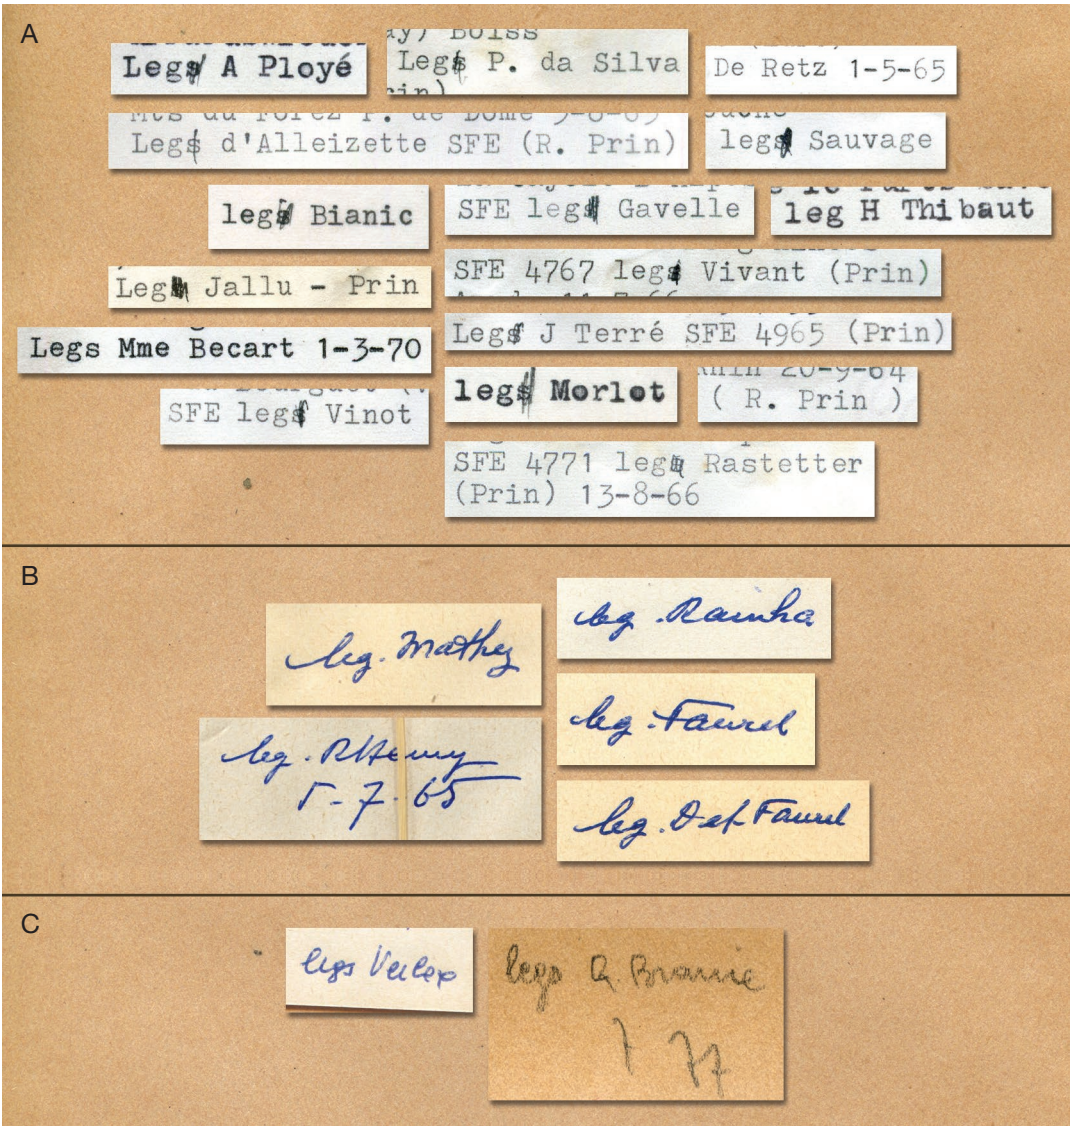 A
Legs A Ployé
Boiss
Legs P. da Silva
De Retz 1-5-65
Mts du Forez P. de Dome
Legs d'Alleizette SFE (R. Prin)
legs Sauvage
legs Bianic
SFE legs Gavelle
leg H Thibaut
Leg Jallu - Prin
SFE 4767 legs Vivant (Prin)
Legs Mme Becart 1-3-70
Legs J Terré SFE 4965 (Prin)
SFE legs Vinot
legs Morlot
20-9-64
( R. Prin )
SFE 4771 leg Rastetter
(Prin) 13-8-66
B
leg. Mathez
leg. Rainha
leg. RHenry
5-7-65
leg. Faurel
leg. Def. Faurel
C
legs
legs A. Braine
7 77